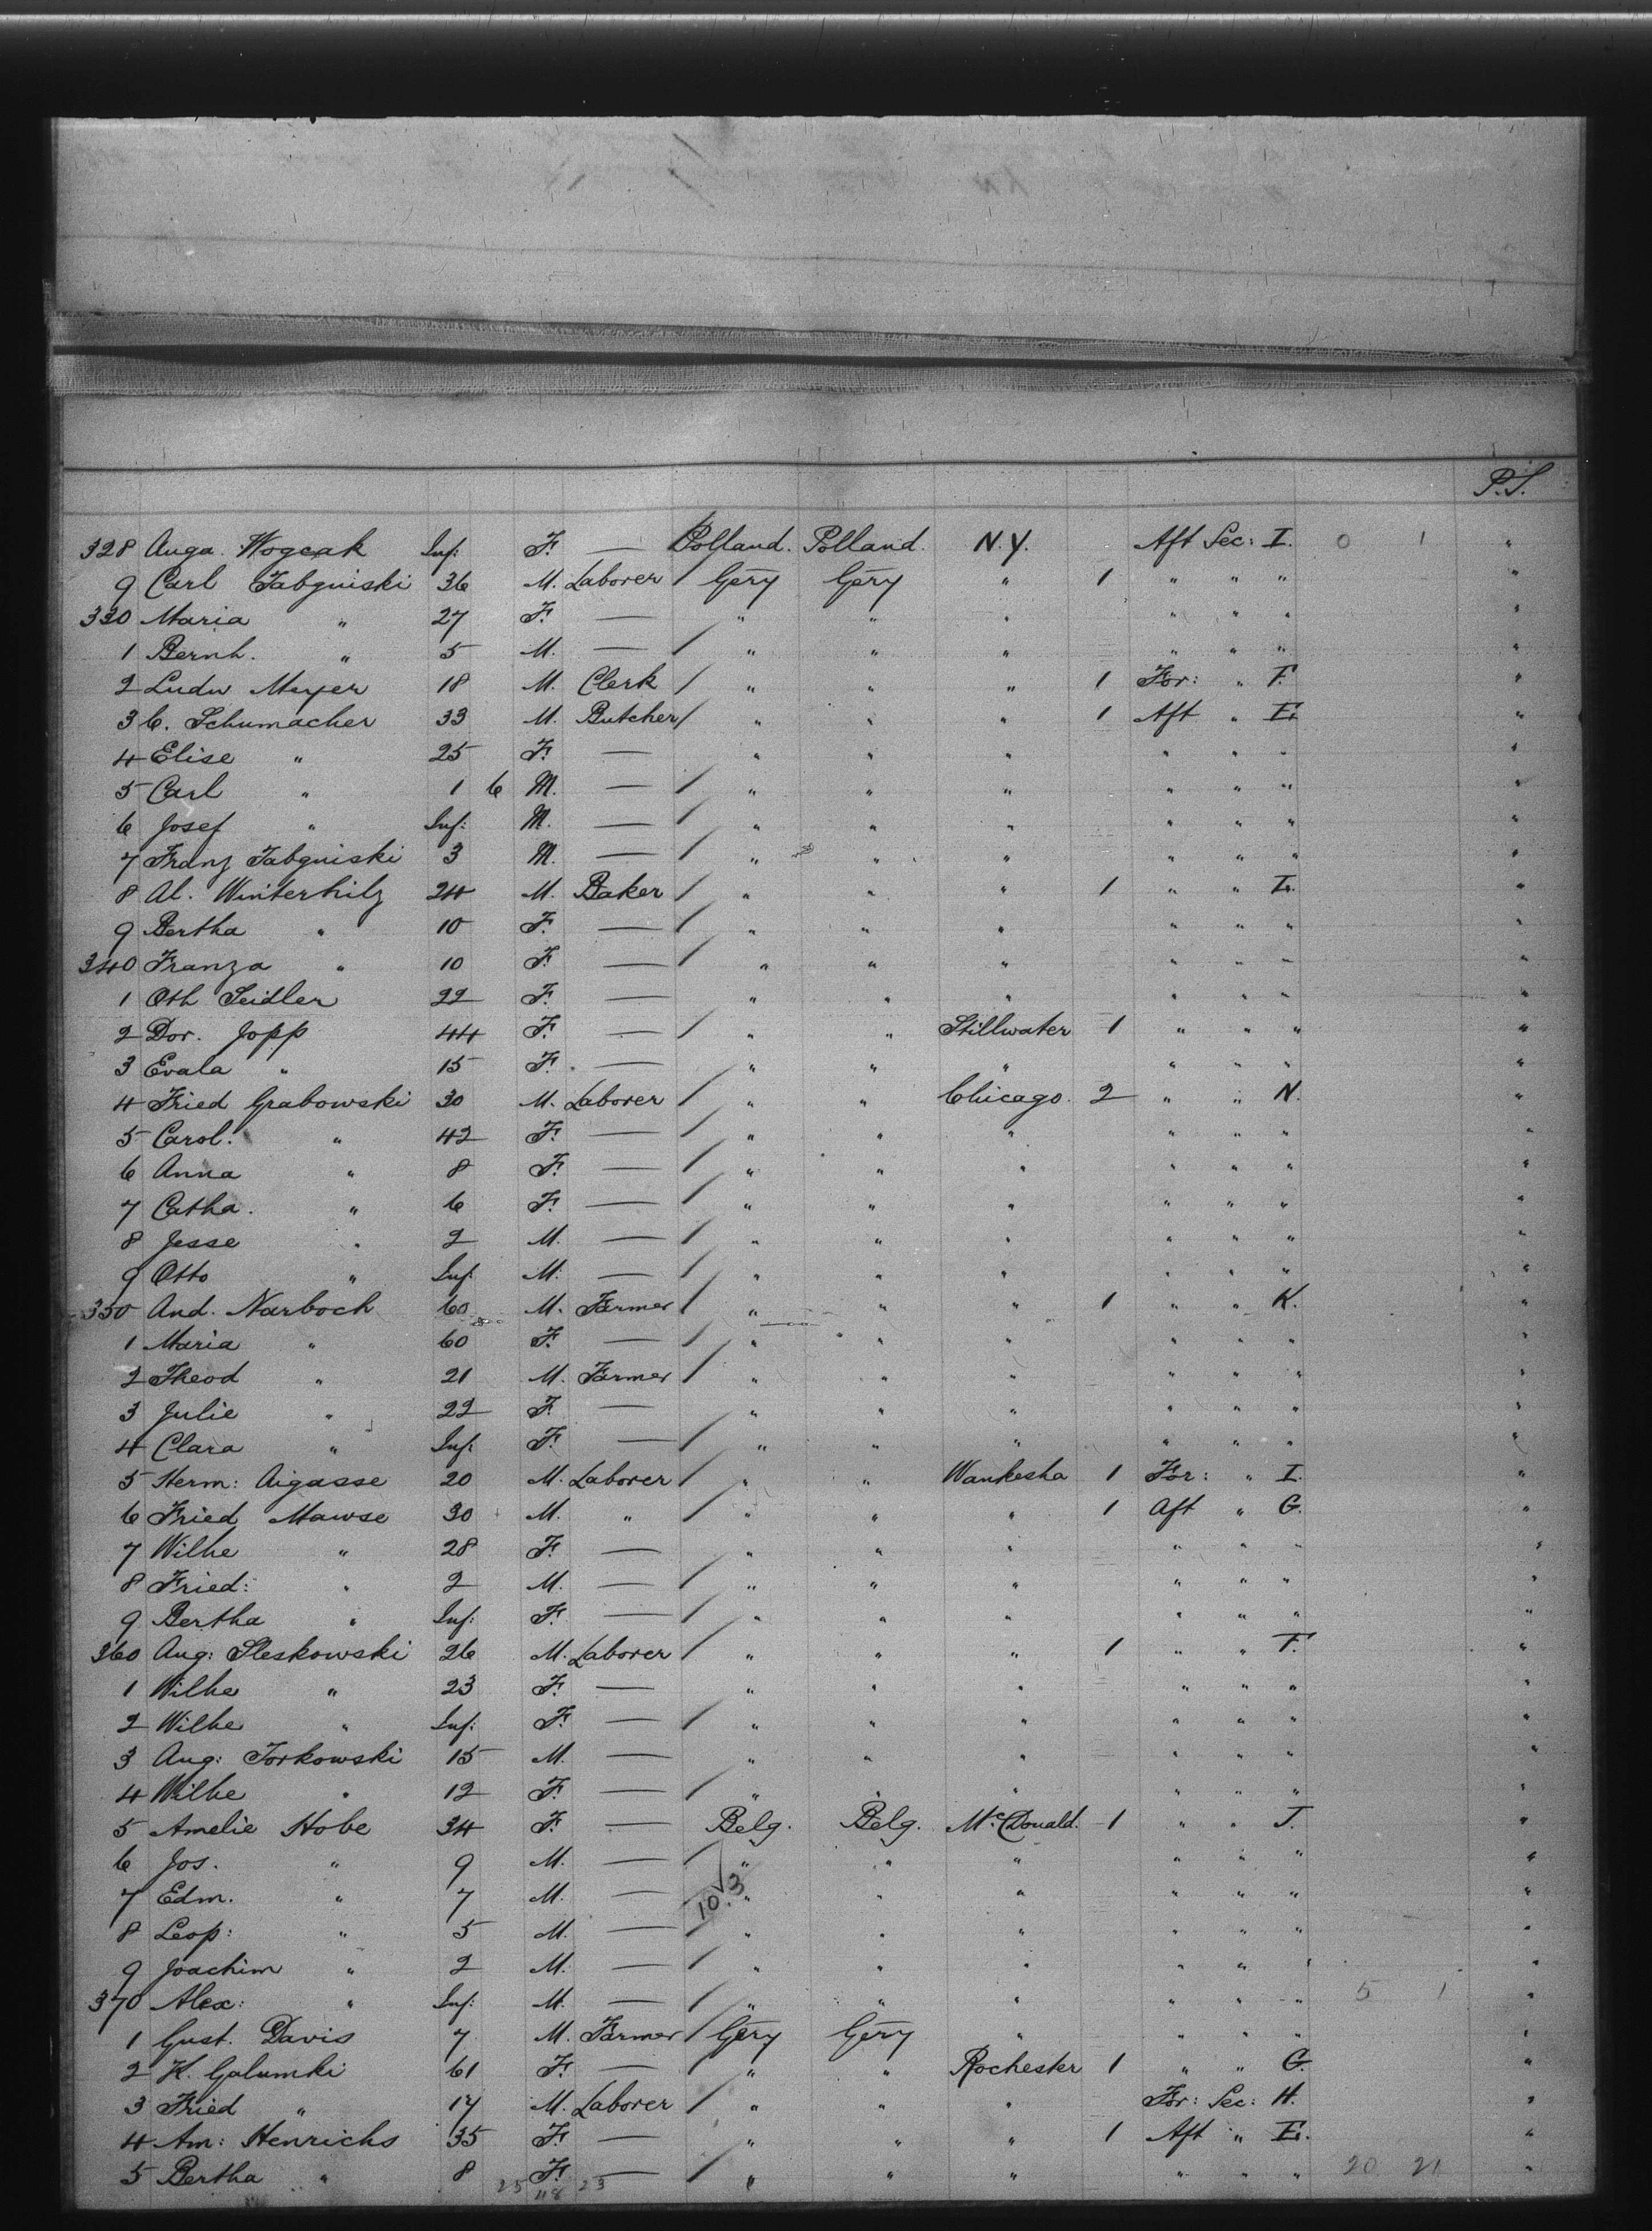 P.S.
328 Auga. Wogcak Inf: F. — Polland. Polland. N.Y. Aft Sec: I. 0 1 "
9 Carl Jabguiski 36 M. Laborer / Gery Gery " 1 " " " "
330 Maria " 27 F. — " " " " " " "
1 Bernh. " 5 M. — / " " " " " " "
2 Ludw Meyer 18 M. Clerk / " " " 1 For: " F. "
3 C. Schumacher 33 M. Butcher / " " " 1 Aft " E. "
4 Elise " 25 F. — " " " " " " "
5 Carl " 1 6 M. — / " " " " " " "
6 Josef " Inf: M. — / " " " " " " "
7 Franz Jabguiski 3 M. — / " " " " " " "
8 Al. Winterhilz 24 M. Baker / " " " 1 " " "
9 Bertha " 10 F. — / " " " " " " "
340 Franza " 10 F. — / " " " " " " "
1 Oth Seidler 22 F. — " " " " " " "
2 Dor. Jopp 44 F. — / " " Stillwater 1 " " " "
3 Evala " 15 F. — " " " " " " "
4 Fried Grabowski 30 M. Laborer / " " Chicago. 2 " " N. "
5 Carol. " 42 F. — / " " " " " " "
6 Anna " 8 F. — / " " " " " " "
7 Catha. " 6 F. — / " " " " " " "
8 Jesse " 2 M. — / " " " " " " "
9 Otto " Inf. M. — / " " " " " " "
350 And. Narboch 60 M. Farmer / " " " 1 " " K. "
1 Maria " 60 F. — / " " " " " " "
2 Theod " 21 M. Farmer / " " " " " " "
3 Julie " 22 F. — " " " " " " "
4 Clara " Inf: F. — / " " " " " " "
5 Herm: Aigasse 20 M. Laborer / " " Waukesha 1 For: " I. "
6 Fried Mawse 30 M. " / " " " 1 Aft " G. "
7 Wilhe " 28 F. — " " " " " " "
8 Fried: " 2 M. — / " " " " " " "
9 Bertha " Inf: F. — / " " " " " " "
360 Aug: Sleskowski 26 M. Laborer / " " " 1 " " F. "
1 Wilhe " 23 F. — " " " " " " "
2 Wilhe " Inf: F. — / " " " " " " "
3 Aug: Torkowski 15 M. — " " " " " " "
4 Wilhe " 12 F. — / " " " " " " "
5 Amelie Hobe 34 F. — Belg. Belg. McDonald. 1 " " J. "
6 Jos. " 9 M. — / " " " " " " "
7 Edm. " 7 M. — 10.3 " " " " " " "
8 Leop: " 5 M. — / " " " " " " "
9 Joachim " 2 M. — / " " " " " " "
370 Alex: " Inf: M. — / " " " " " " 5 1 "
1 Gust. Davis 7 M. Farmer / Gery Gery " " " " "
2 K. Galumki 61 F. — / " " Rochester 1 " " G. "
3 Fried " 17 M. Laborer / " " " For: Sec: H. "
4 Am: Henrichs 35 F. — " " " 1 Aft " E. "
5 Bertha " 8 F. — / " " " " " " 20 21 "
25 48 23